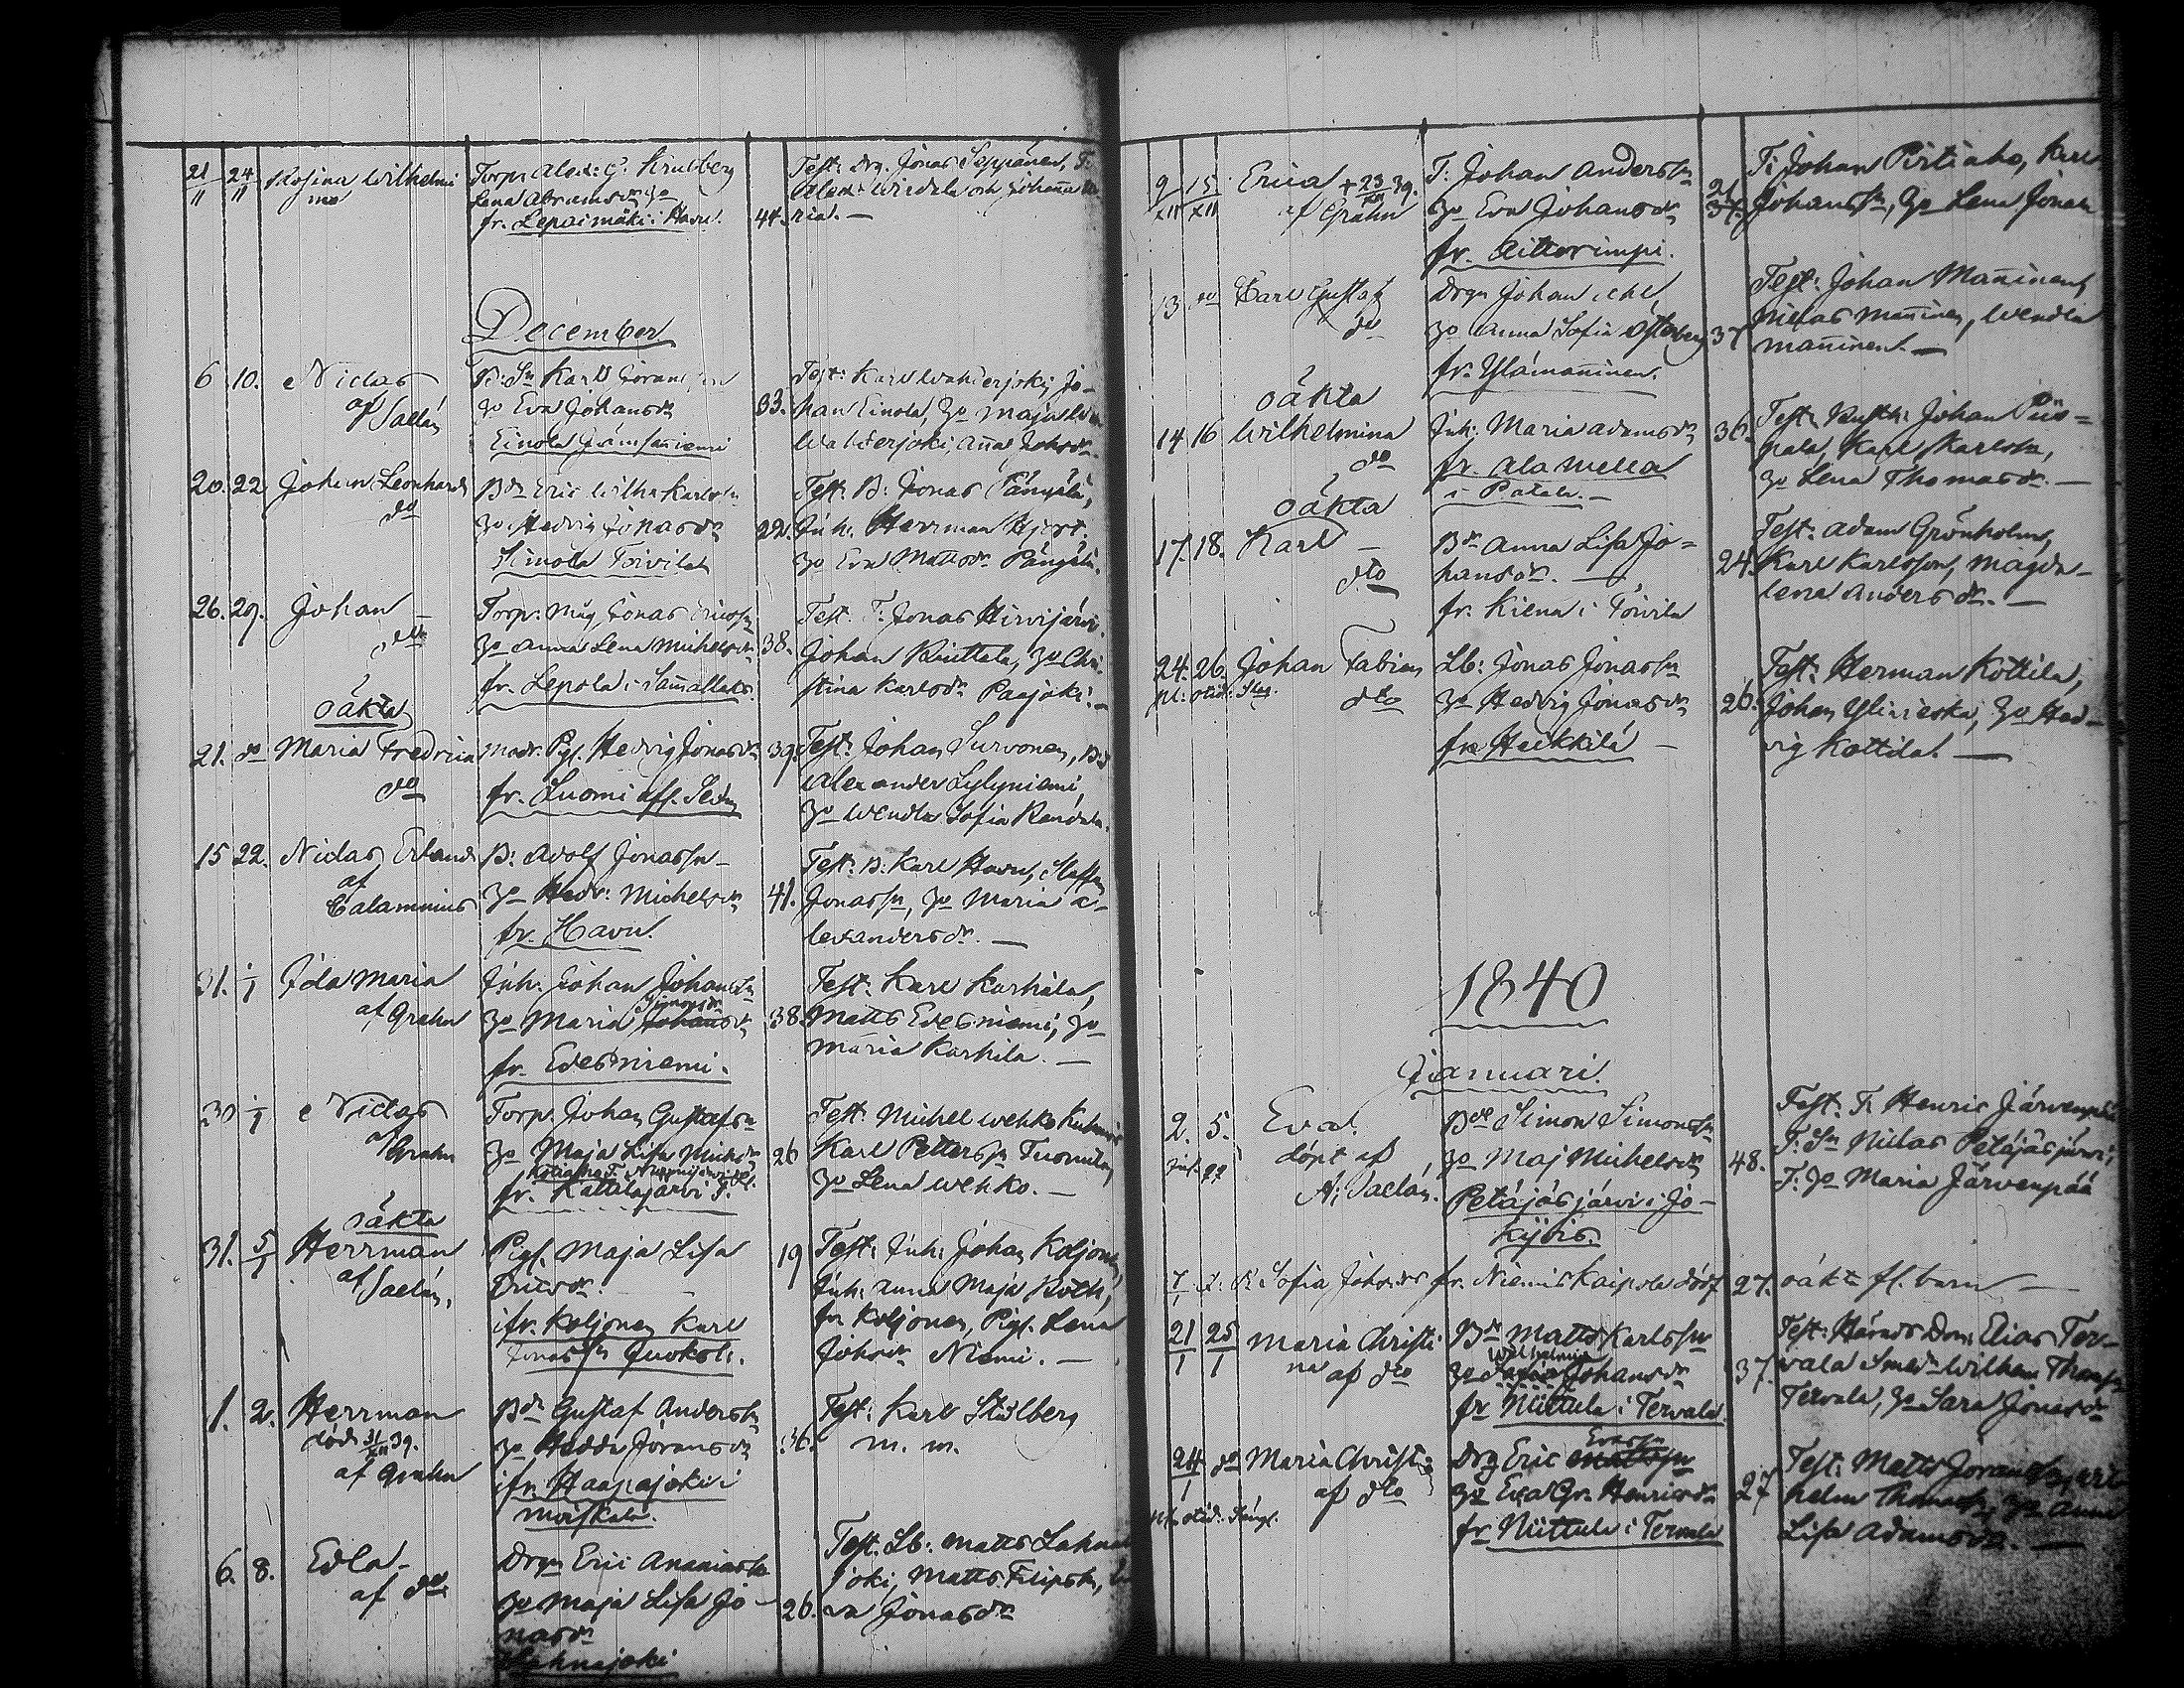 21/11 24/11 Rosina Wilhelmi
na
Torp. Alex: G: Kruberg
Lena Abramsdr
fr. Lepaimäki i Havu.
44.
Test: Drg. Jonas Seppänen,
Alex: Wirdela och Johanna
ria. —
December
6 10. Niclas
af Saelán
B: Sn Karl Göransson
Eva Johansdr
Einola Jämsänniemi
33.
Test: Karl Wahderjoki, Jo-
han Einola, Maja
Wahderjoki, Anna Johsdr
20. 22 Johan Leonhard
do
Bdn Eric Wilh: Karlssn
Hedvig Jonasdr
Simola Toivila
22.
Test: B: Jonas Pängälä,
Inh: Herrman Hjert.
Eva Mattsdr Pängälä.
26. 29. Johan —
dto
Torp. Måg Jonas Ericssn
Anna Lena Michelsdr
fr. Lepola i Sammallahti
38.
Test. T: Jonas Hirvijärvi
Johan Kuittala, Chri-
stina Karlsdr Paajoki. —
oäkta
21. do Maria Fredrica
do
modr. Pig. Hedvig Jonasdr
fr. Luomi
39.
Test: Johan Survonen,
Alexander Sylyniemi,
Wendla Sofia Randala.
15 22. Niclas Erland
af
Calamnius
B: Adolf Jonassn —
Hedv: Michelsdr
fr. Havu.
41.
Test: B: Karl Havu, Staffan
Jonassn, Maria A-
lexandersdr. —
31. 1/1 Ida Maria
af Grahn
Inh. Johan Johanssn
Simonsdr
Maria Johansdr
fr. Edesniemi.
38.
Test: Karl Karhila,
Matts Edesniemi,
Maria Karhila. —
30 1/1 Niclas
af Grahn
Torp. Johan Gustafssn
Maja Lisa Michsdr
fr. Kattilajärvi T.
26
Test: Michel Wehko
Karl Petterssn Tuomila,
Lena Wehko. —
oäkta
31. 5/1 Herrman
af Saelán.
Pig. Maja Lisa
Ericsdr. —
ifr. Koljonen Karl
Jonassn Juoksli.
19
Test: Inh: Johan Koljonen,
Inh: Anna Maja Röth,
fr Koljonen, Pig. Lena
Johsdr Niemi. —
1. 2. Herrman
död 31/XII 39.
af Grahn
Bdn Gustaf Anderssn
Hedda Göransdr
ifr. Haapajoki i
Moiskala.
36.
Test: Karl Stålberg
m. m.
6. 8. Edla —
af do
Drgn Eric Ananiassn
Maja Lisa Jo-
nasdr
Lahnajoki
26.
Test. Lb: Matts Lahna
joki, Matts Filipssn,
va Jonasdr
9/XII 15/XII Erica + 23/XII 39.
af Grahn
T: Johan Anderssn
Eva Johansdr
fr. Aittorimpi.
21
37.
T: Johan Pirtiaho, Karl
Johanssn, Lena Jonas
13 do Carl Gustaf
do
Drgn Johan
Anna Sofia Österberg
fr. Ylämanninen.
37
Test: Johan Manninen,
Niclas Manninen, Wendla
Manninen. —
oäkta
14 16 Wilhelmina
do
Inh: Maria Adamsdr
fr. Ala Mella
i Patala. —
36.
Test. Rusth: Johan Piis=
pala, Karl Karlssn,
Lena Thomasdr. —
oäkta
17. 18. Karl —
dto
Bdr Anna Lisa Jo=
hansdr. —
fr. Kiena i Toivila
24.
Test: Adam Grönholm,
Karl Karlsson, Magda-
lena Andersdr. —
24. 26. Johan Fabian
dto
Lb: Jonas Jonassn
Hedvig Jonasdr
fr. Heikkilä —
26.
Test: Herman Köttilä,
Johan Ylivieska, Hed-
vig Kottila. —
1840
Januari.
2. 5. Eva.
döpt af
A: Saelán.
Bde Simon Simonssn
Maj Michelsdr
Petäjäsjärvi i Jo-
kijois.
48.
Test. T: Henric Järvenpää
T: Sn Niclas Petäjäsjärvi,
T: Maria Järvenpää
7/1 Sofia Johsdr fr. Niemis Kaipola dödf 27. oäkta fl. barn —
21/1 25/1 Maria Christi-
na af dto
Bdn Matts Karlssn
Wilhelmina
Sofia Johansdr
fr Niittula i Tervala.
37.
Test: Härads Dom: Elias Ter-
vala Smedn Wilhelm Thomssn
Tervala, Sara Jonasdr
24/1 do Maria Christi:
af dto
Evassn
Drg Eric Mattssn
Eva Gr. Henricsdr
fr Niittula i Tervala
27
Test: Matts Göranssn,
helm Thomassn, Anna
Lisa Adamsdr. —